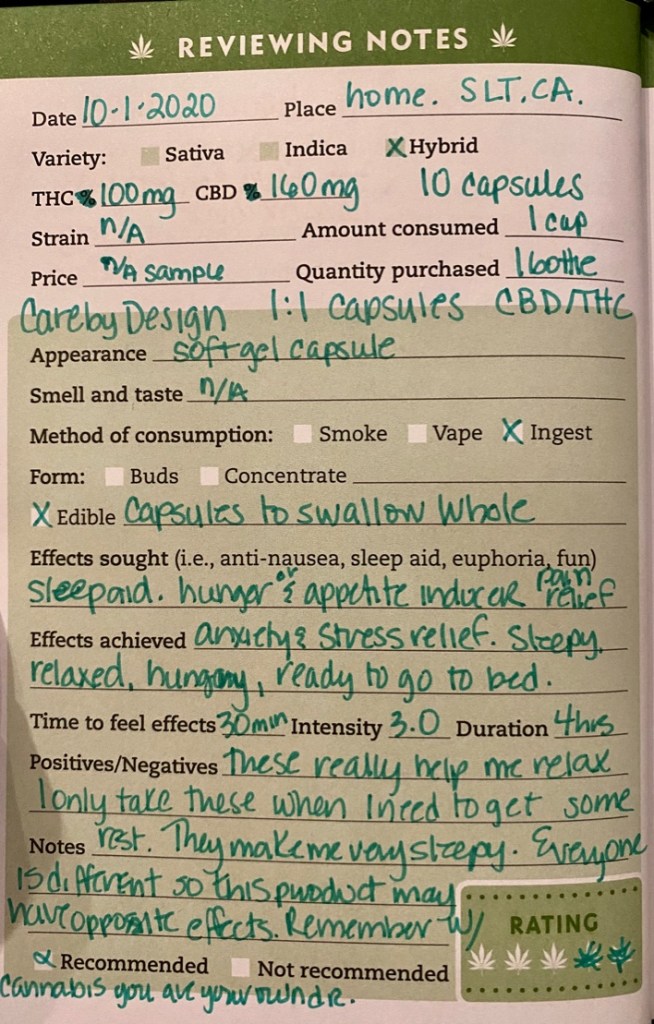 REVIEWING NOTES
Date 10-1-2020 Place home. SLT, CA.
Variety: Sativa Indica X Hybrid
THC % 100mg CBD % 160mg 10 capsules
Strain n/A Amount consumed 1 cap
Price n/A sample Quantity purchased 1 bottle
Care by Design 1:1 capsules CBD/THC
Appearance softgel capsule
Smell and taste n/A
Method of consumption: Smoke Vape X Ingest
Form: Buds Concentrate
X Edible capsules to swallow whole
Effects sought (i.e., anti-nausea, sleep aid, euphoria, fun)
sleepaid. hunger or & appetite inducer pain relief
Effects achieved anxiety & stress relief. Sleepy,
relaxed, hungry, ready to go to bed.
Time to feel effects 30min Intensity 3.0 Duration 4hrs
Positives/Negatives These really help me relax
I only take these when I need to get some
Notes rest. They make me very sleepy. Everyone
is different so this product may
have opposite effects. Remember w/
RATING
Recommended Not recommended
cannabis you are your own dr.